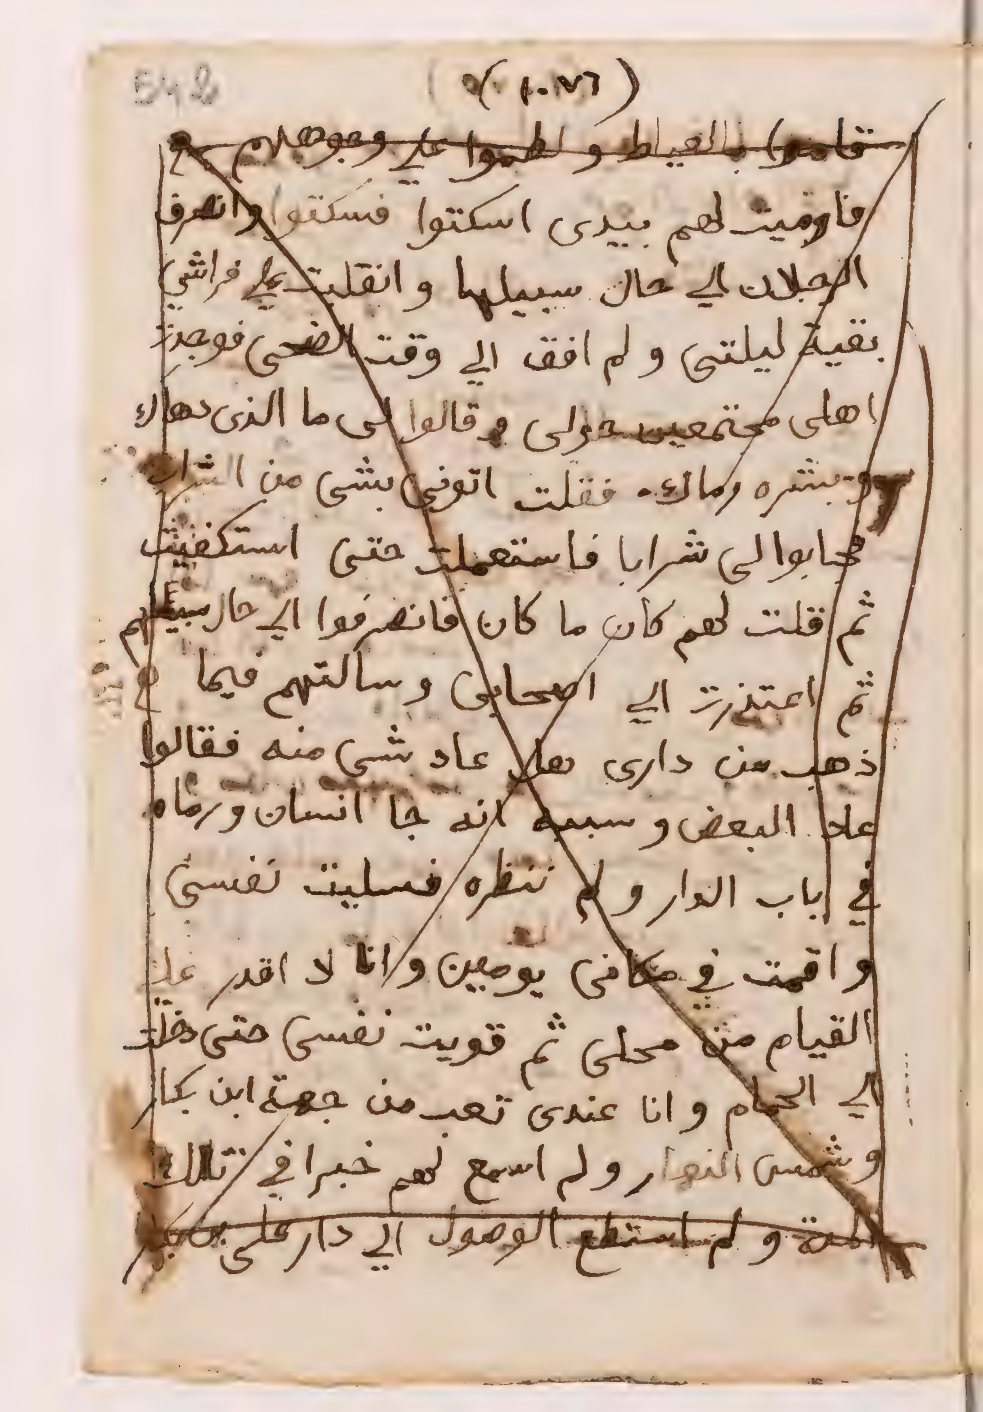 54b
(١٠٧٦)
قاموا بالعياط و لطموا علي وجوههم
فاوميت لهم بيدى اسكتوا فسكتوا وانصرف
الرجلان الي حال سبيلهما و انقلبت علي فراشي
بقية ليلتى و لم افق الي وقت الضحى فوجدت
اهلى مجتمعين حولى و قالوا لى ما الذى دهاك
و بشره رماك فقلت اتونى بشى من الشراب
فجابوا لى شرابا فاستعملت حتى استكفيت
ثم قلت لهم كان ما كان فانصرفوا الي حال سبيلهم
ثم اعتذرت الي اصحابى و سالتهم فيما
ذهب من دارى هل عاد شى منه فقالوا
عاد البعض و سببه انه جا انسان ورماه
في باب الدار و لم ننظره فسليت نفسى
و اقمت في مكانى يومين و انا لا اقدر علي
القيام من محلى ثم قويت نفسى حتى دخلت
الي الحمام و انا عندى تعب من جهة ابن بكار
و شمس النهار و لم اسمع لهم خبرا في تلك
المدة و لم استطع الوصول الي دار على بن بكار